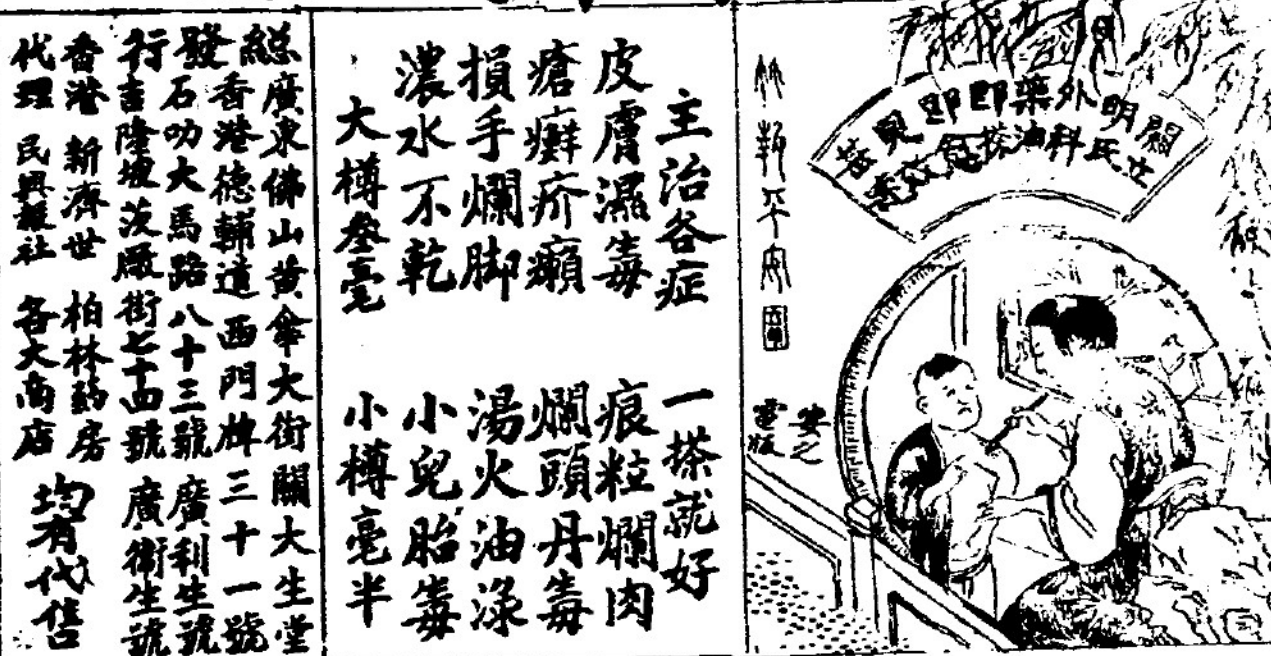 關立
明氏
外科
藥油
竹報平安
安之
電版
主治各症 一搽就好
皮膚濕毒 痕粒爛肉
瘡癬疥癩 爛頭丹毒
損手爛脚 湯火油淥
濃水不乾 小兒胎毒
大樽叁毫 小樽毫半
總發行
廣東佛山黃傘大街關大生堂
香港德輔道西門牌三十一號
石叻大馬路八十三號 廣利生號
吉隆坡茨廠街七十四號 廣衛生號
香港 新濟世 柏林葯房
代理 民興報社 各大商店
均有代售